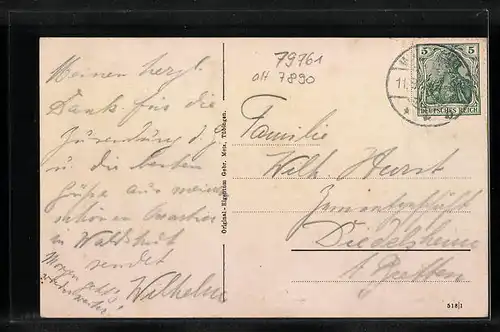 Meinen herzl.
Dank für die
Zusendung d. J.
u. die besten
Grüße aus meinem
schönen Quartier
in Waldshut
sendet
Wilhelm
Morgen geht's
wieder weiter!
Original-Eigentum Gebr. Metz, Tübingen.
79761
alt 7890
5 5
DEUTSCHES REICH
11.
Familie
Wilh. Hurst
Diedelsheim
b. Bretten
518|1